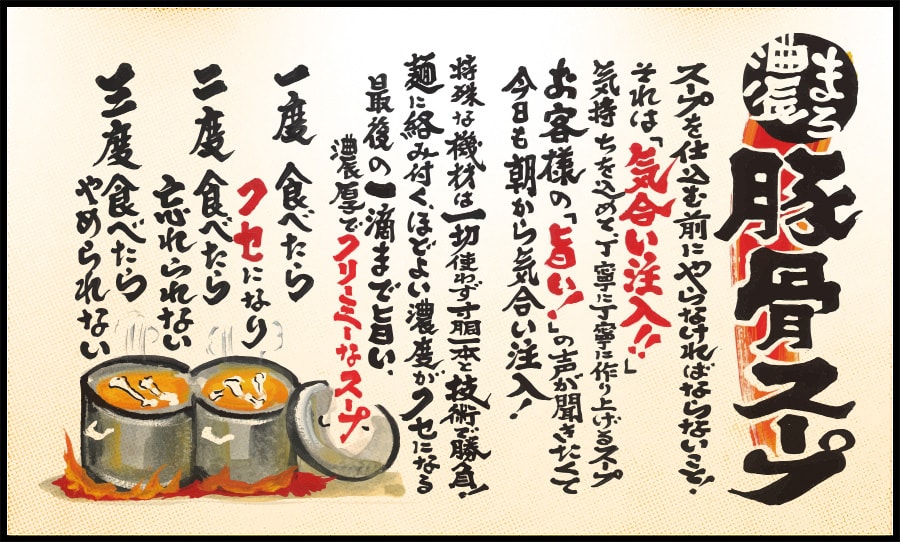 濃厚まろ
豚骨スープ
スープを仕込む前にやらなければならないこと、
それは「気合い注入!!」
気持ちを込めて丁寧に丁寧に作り上げるスープ
お客様の「旨い!」の声が聞きたくて
今日も朝から気合い注入!
特殊な機材は一切使わず寸胴一本と技術で勝負!
麺に絡み付く、ほどよい濃度がクセになる
最後の一滴まで旨い、
濃厚でクリーミーなスープ
一度食べたら
クセになり
二度食べたら
忘れられない
三度食べたら
やめられない